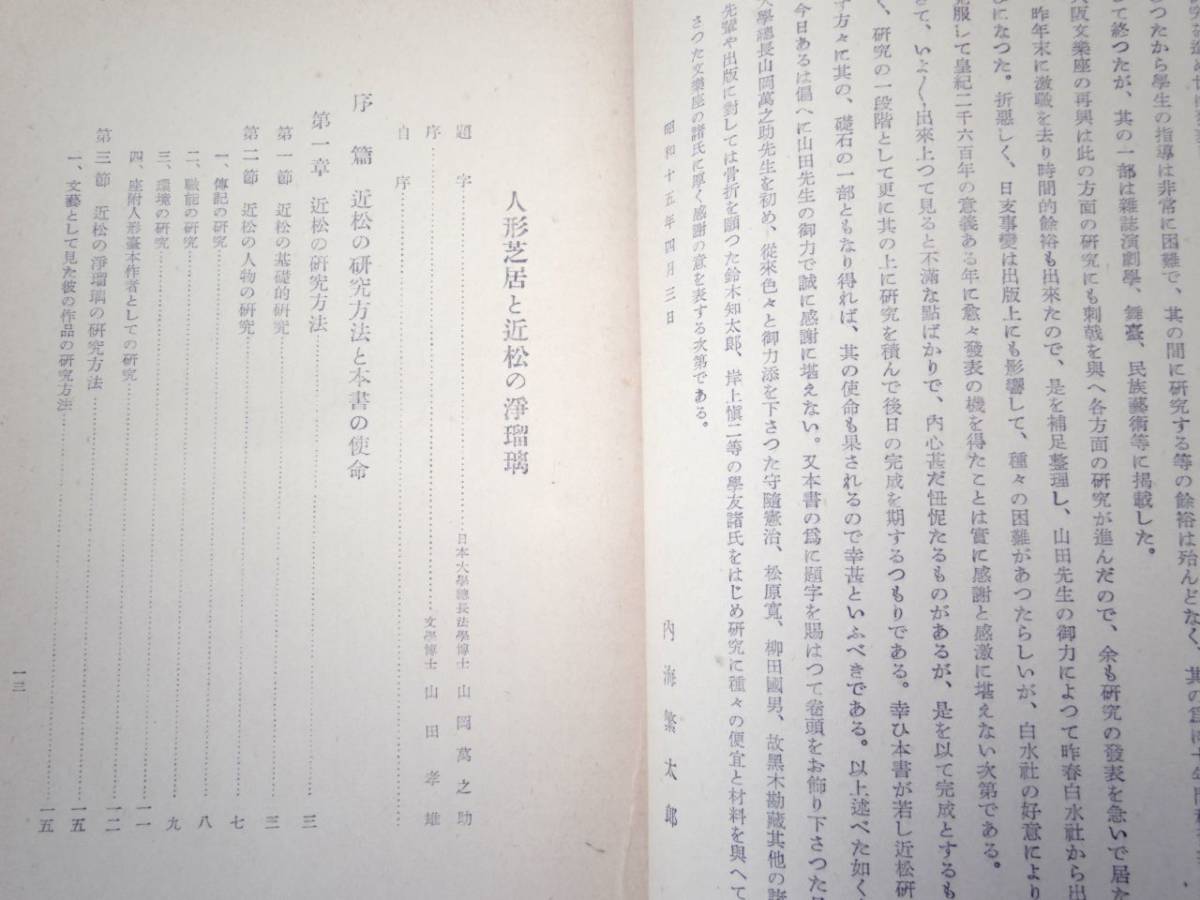 つたから學生の指導は非常に困難で、其の間に研究する等の餘裕は殆んどなく、其の爲に十年間
て終つたが、其の一部は雜誌演劇學、舞臺、民族藝術等に掲載した。
阪文樂座の再興は此の方面の研究にも刺戟を與へ各方面の研究が進んだので、余も研究の發表を急いで居た
昨年末に激職を去り時間的餘裕も出來たので、是を補足整理し、山田先生の御力によつて昨春白水社から出
になつた。折惡しく、日支事變は出版上にも影響して、種々の困難があつたらしいが、白水社の好意により
服して皇紀二千六百年の意義ある年に愈々發表の機を得たことは實に感謝と感激に堪えない次第である。
て、いよ〳〵出來上つて見ると不滿な點ばかりで、內心甚だ忸怩たるものがあるが、是を以て完成とするも
く、研究の一段階として更に其の上に研究を積んで後日の完成を期するつもりである。幸ひ本書が若し近松研
方々に其の、礎石の一部ともなり得れば、其の使命も果されるので幸甚といふべきである。以上述べた如く
今日あるは偏へに山田先生の御力で誠に感謝に堪えない。又本書の爲に題字を賜はつて卷頭をお飾り下さつた
大學總長山岡萬之助先生を初め、從來色々と御力添を下さつた守隨憲治、松原寬、柳田國男、故黑木勘藏其他の諸
先輩や出版に對しては骨折を願つた鈴木知太郎、岸上愼二等の學友諸氏をはじめ研究に種々の便宜と材料を與へて
さつた文樂座の諸氏に厚く感謝の意を表する次第である。
昭和十五年四月三日
內海繁太郎
人形芝居と近松の淨瑠璃
題字……日本大學總長法學博士 山岡萬之助
序……文學博士 山田孝雄
自序……
序篇 近松の硏究方法と本書の使命
第一章 近松の硏究方法……三
第一節 近松の基礎的研究……三
第二節 近松の人物の研究……七
一、傳記の研究……八
二、職能の研究……八
三、環境の研究……九
四、座附人形臺本作者としての研究……一一
第三節 近松の淨瑠璃の研究方法……一二
一、文藝として見た彼の作品の研究方法……一五
一五
一三